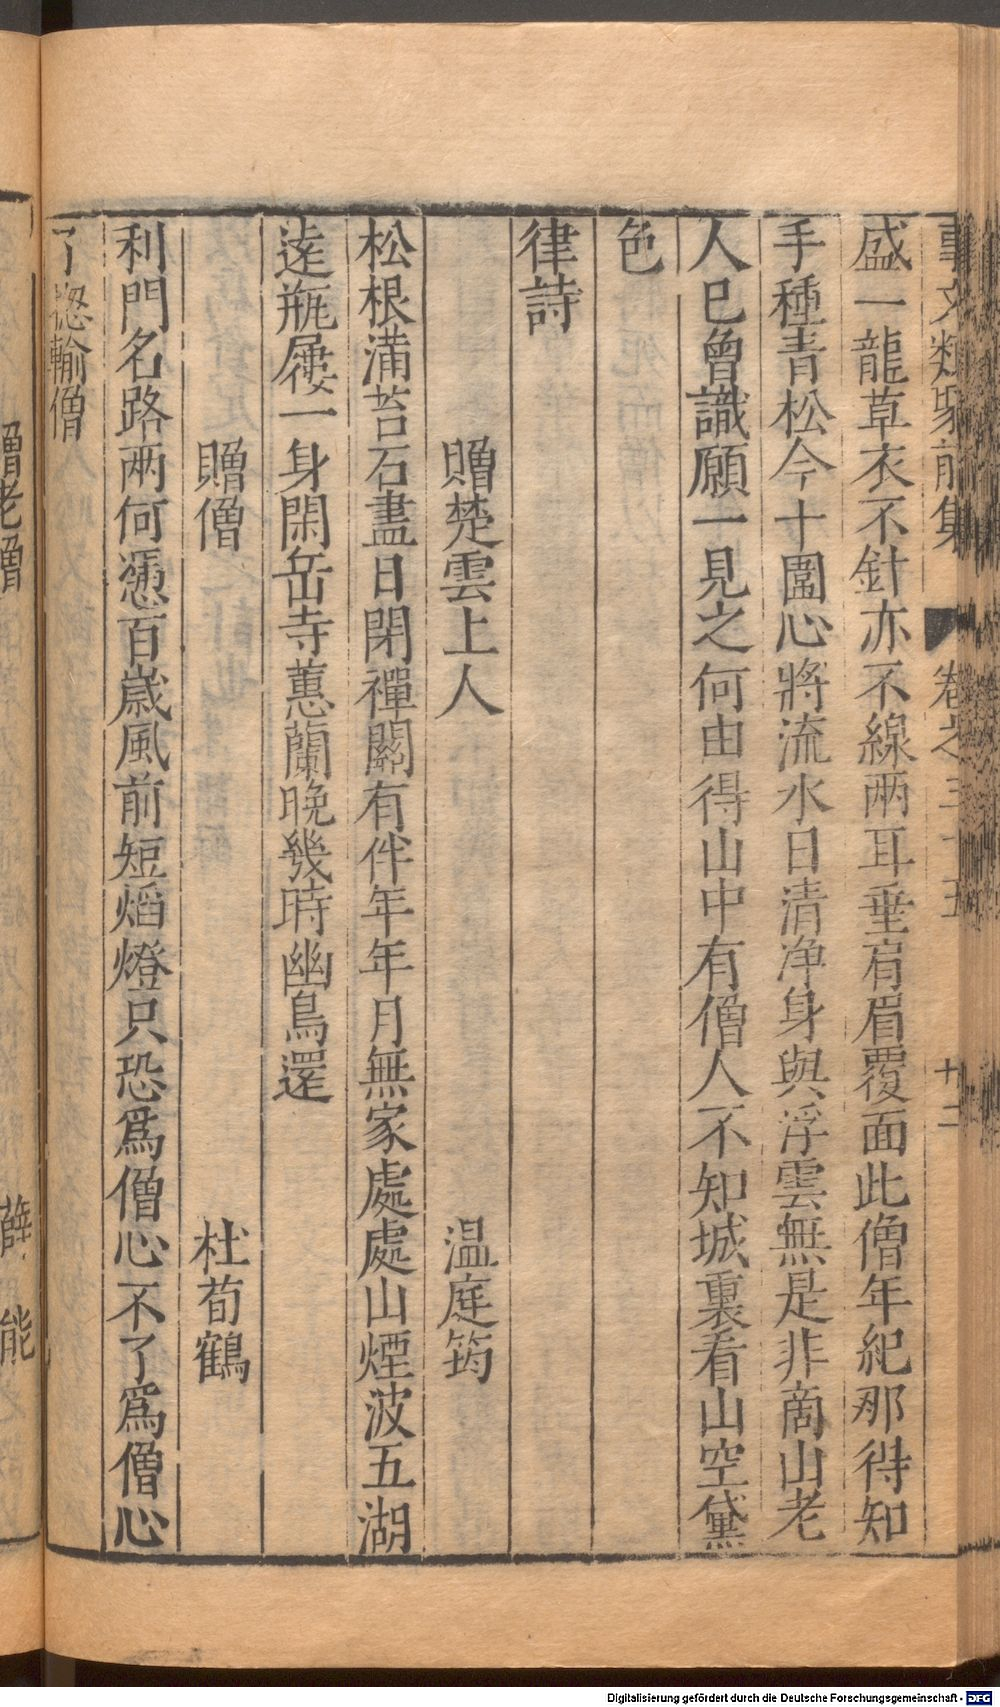 事文類聚前集 卷之三十五 十二
盛一龍草衣不針亦不線兩耳垂肩眉覆面此僧年紀那得知
手種青松今十圍心將流水日清净身與浮雲無是非商山老
人已曾識願一見之何由得山中有僧人不知城裏看山空黛
色
律詩
贈楚雲上人 温庭筠
松根滿苔石盡日閉禪關有伴年年月無家處處山煙波五湖
逺瓶屨一身閑岳寺蕙蘭晚幾時幽鳥還
贈僧 杜荀鶴
利門名路兩何憑百歲風前短熖燈只恐爲僧心不了爲僧心
了揔輸僧
贈老僧 薛能
Digitalisierung gefördert durch die Deutsche Forschungsgemeinschaft - DFG